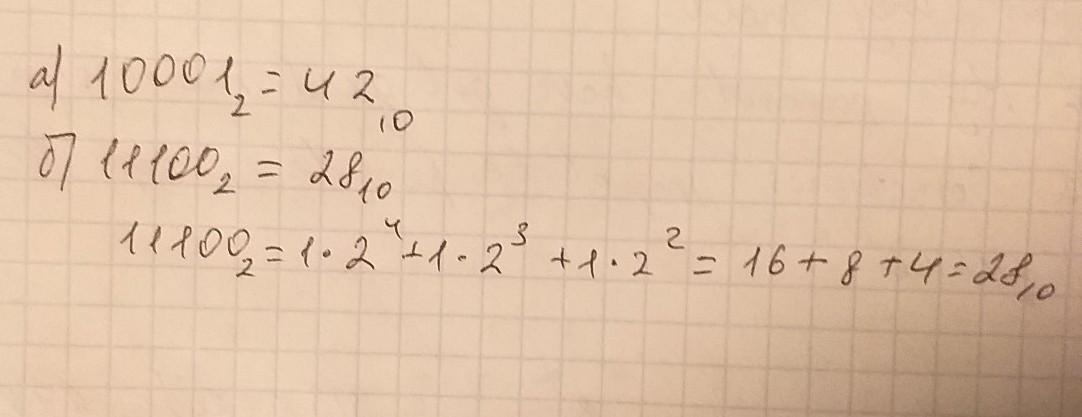 а) 10001₂ = 42₁₀
б) 11100₂ = 28₁₀
11100₂ = 1·2⁴+1·2³+1·2² = 16+8+4=28₁₀